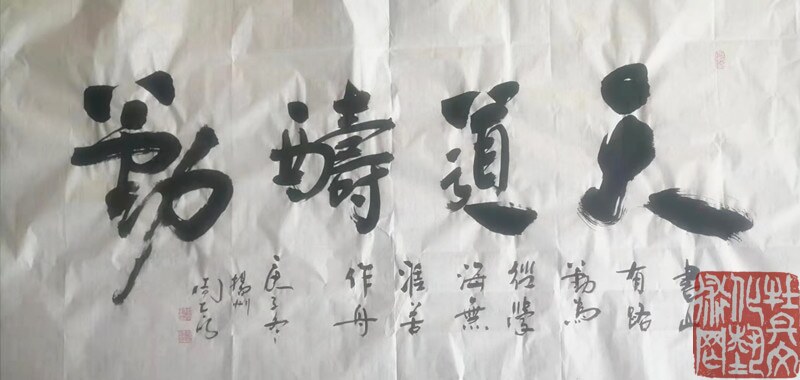 天道醻勤
書山
有路
勤為
徑學
海無
涯苦
作舟
庚子冬
揚州